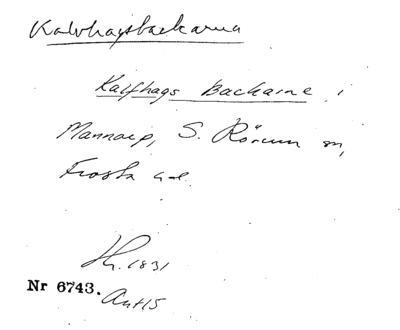 Kalvhagsbackarna
Kalfhags Backarne i
Mannarp, S. Rörum sn,
Frosta hd.
Hr. 1831
Nr 6743.
Ant 15